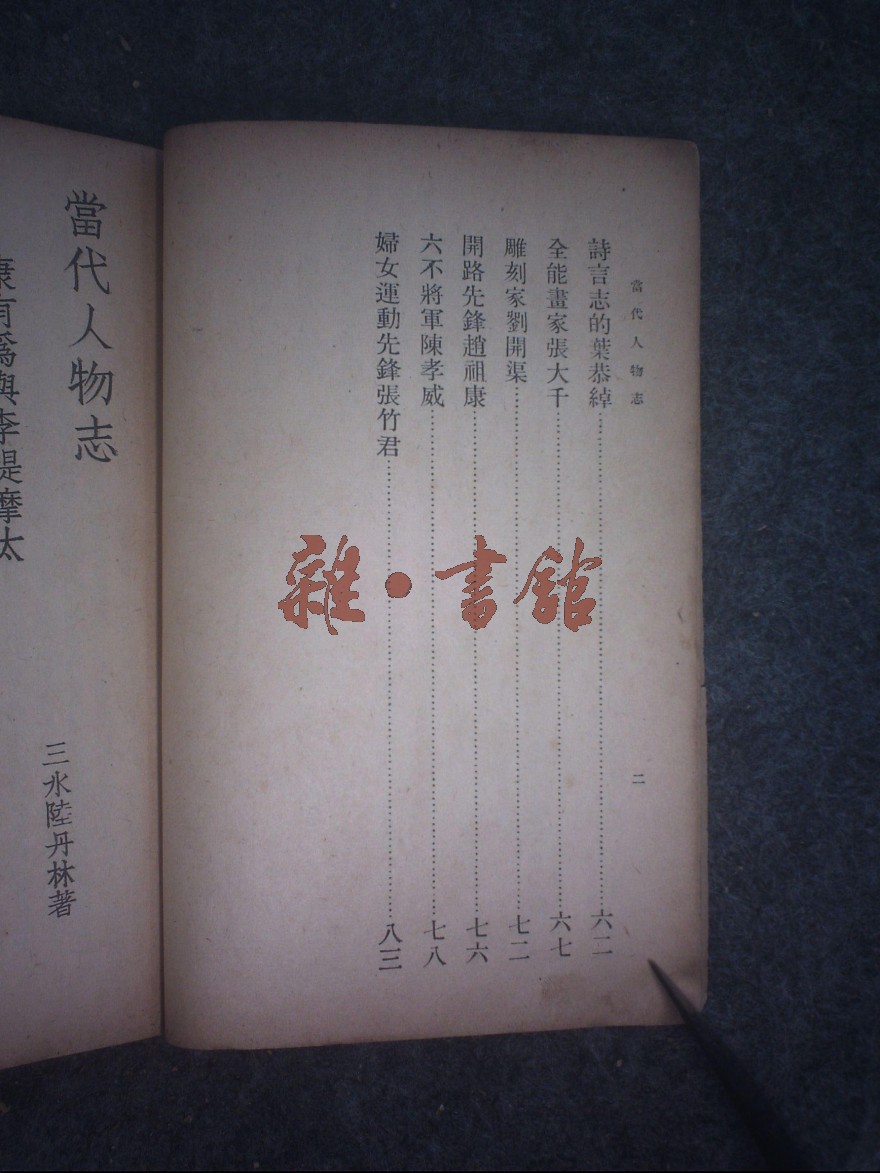 當代人物志
二
詩言志的葉恭綽……六二
全能畫家張大千……六七
雕刻家劉開渠……七二
開路先鋒趙祖康……七六
六不將軍陳孝威……七八
婦女運動先鋒張竹君……八三
雜·書館
當代人物志
三水陸丹林著
康有爲與李提摩太